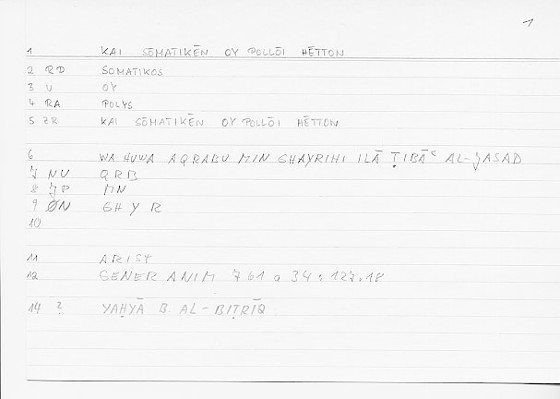 1
1 KAI SŌMATIKĒN OY POLLŌI HĒTTON
2 RD SOMATIKOS
3 U OY
4 RA POLYS
5 ZR KAI SŌMATIKĒN OY POLLŌI HĒTTON
6 WA HUWA AQRABU MIN GHAYRIHI ILĀ ṬIBĀʿ AL-JASAD
7 NU QRB
8 JP MN
9 ØN GHYR
10
11 ARIST
12 GENER ANIM 761 a 34 ; 127.18
14 ? YAḤYĀ B. AL-BIṬRĪQ